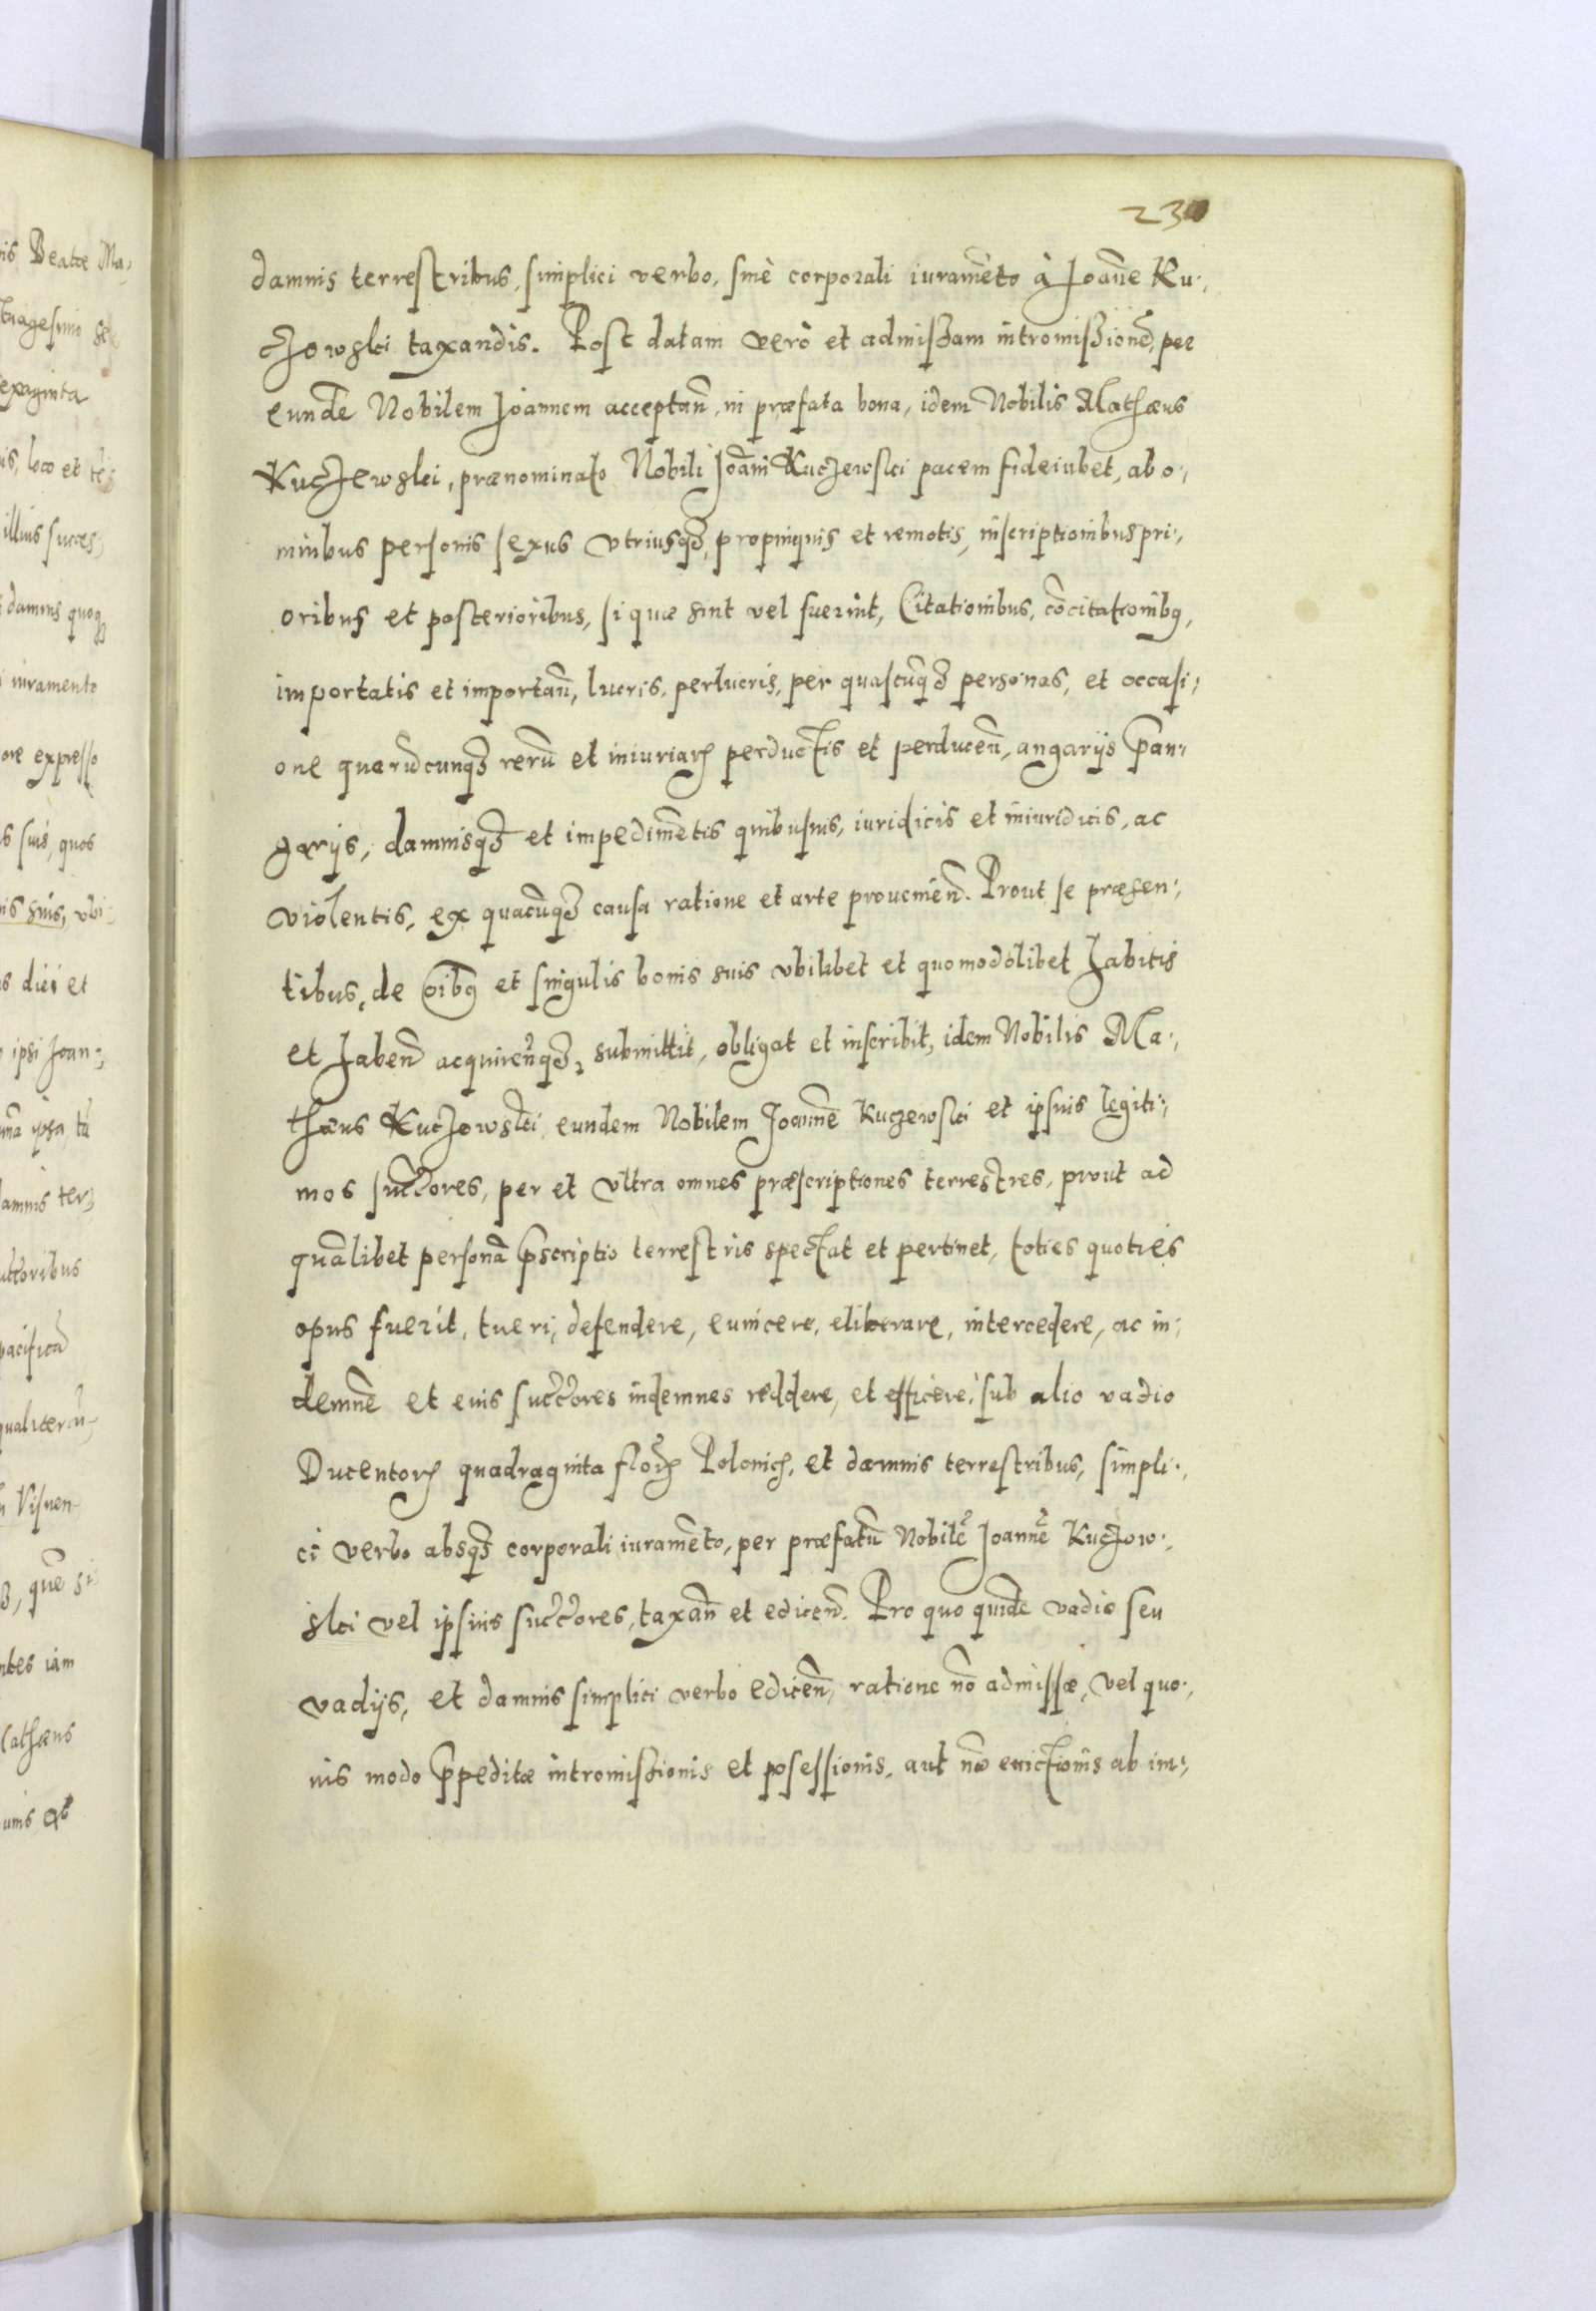 230
damnis terrestribus, simplici verbo, sinè corporali iuramẽto à Joãne Ku-
czowski taxandis. Post datam verò et admissam intromissionẽ, per
eundẽ Nobilem Joannem acceptañ, in præfata bona, idem Nobilis Mathæus
Kuczewski, prænominato Nobili Joãni Kuczewski pacem fideiubet, ab o-
mnibus personis sexus vtriusq3, propinquis et remotis, inscriptionibus pri-
oribus et posterioribus, si quæ sint vel fuerint, Citationibus, cõcitationibq,
importatis et importañ, lucris, perlucris, per quascũq3 personas, et occasi-
one quarũcunq3 rerũ et iniuriaꝝ perductis et perduceñ, angarijs p̃an-
garijs, damnisq3 et impedimẽtis quibusuis, iuridicis et iniuridicis, ac
violentis, ex quacũq3 causa ratione et arte prouenieñ. Prout se præsen-
tibus, de oĩbq et singulis bonis suis vbilibet et quomodolibet habitis
et habeñ acquireñq3, submittit, obligat et inscribit, idem Nobilis Ma-
thæus Kuczowski, eundem Nobilem Joannẽ Kuczewski et ipsius legiti-
mos succ̃ores, per et vltra omnes præscriptiones terrestres, prout ad
quãlibet personã p̃scriptio terrestris spectat et pertinet, toties quoties
opus fuerit, tueri, defendere, euincere, eliberare, intercedere, ac in-
demnẽ et eius succ̃ores indemnes reddere, et efficere, sub alio vadio
Ducentoꝝ quadraginta floꝝ Polonicꝝ, et damnis terrestribus, simpli-
ci verbo absq3 corporali iuramẽto, per præfatũ Nobilẽ Joannẽ Kuczow-
ski vel ipsius succ̃ores, taxañ etediceñ. Pro quo quidẽ vadio seu
vadijs, et damnis simplici verbo ediceñ, ratione nõ admissæ, vel quo-
uis modo p̃peditæ intromissionis et posessionis, aut nõ euictionis ab im-